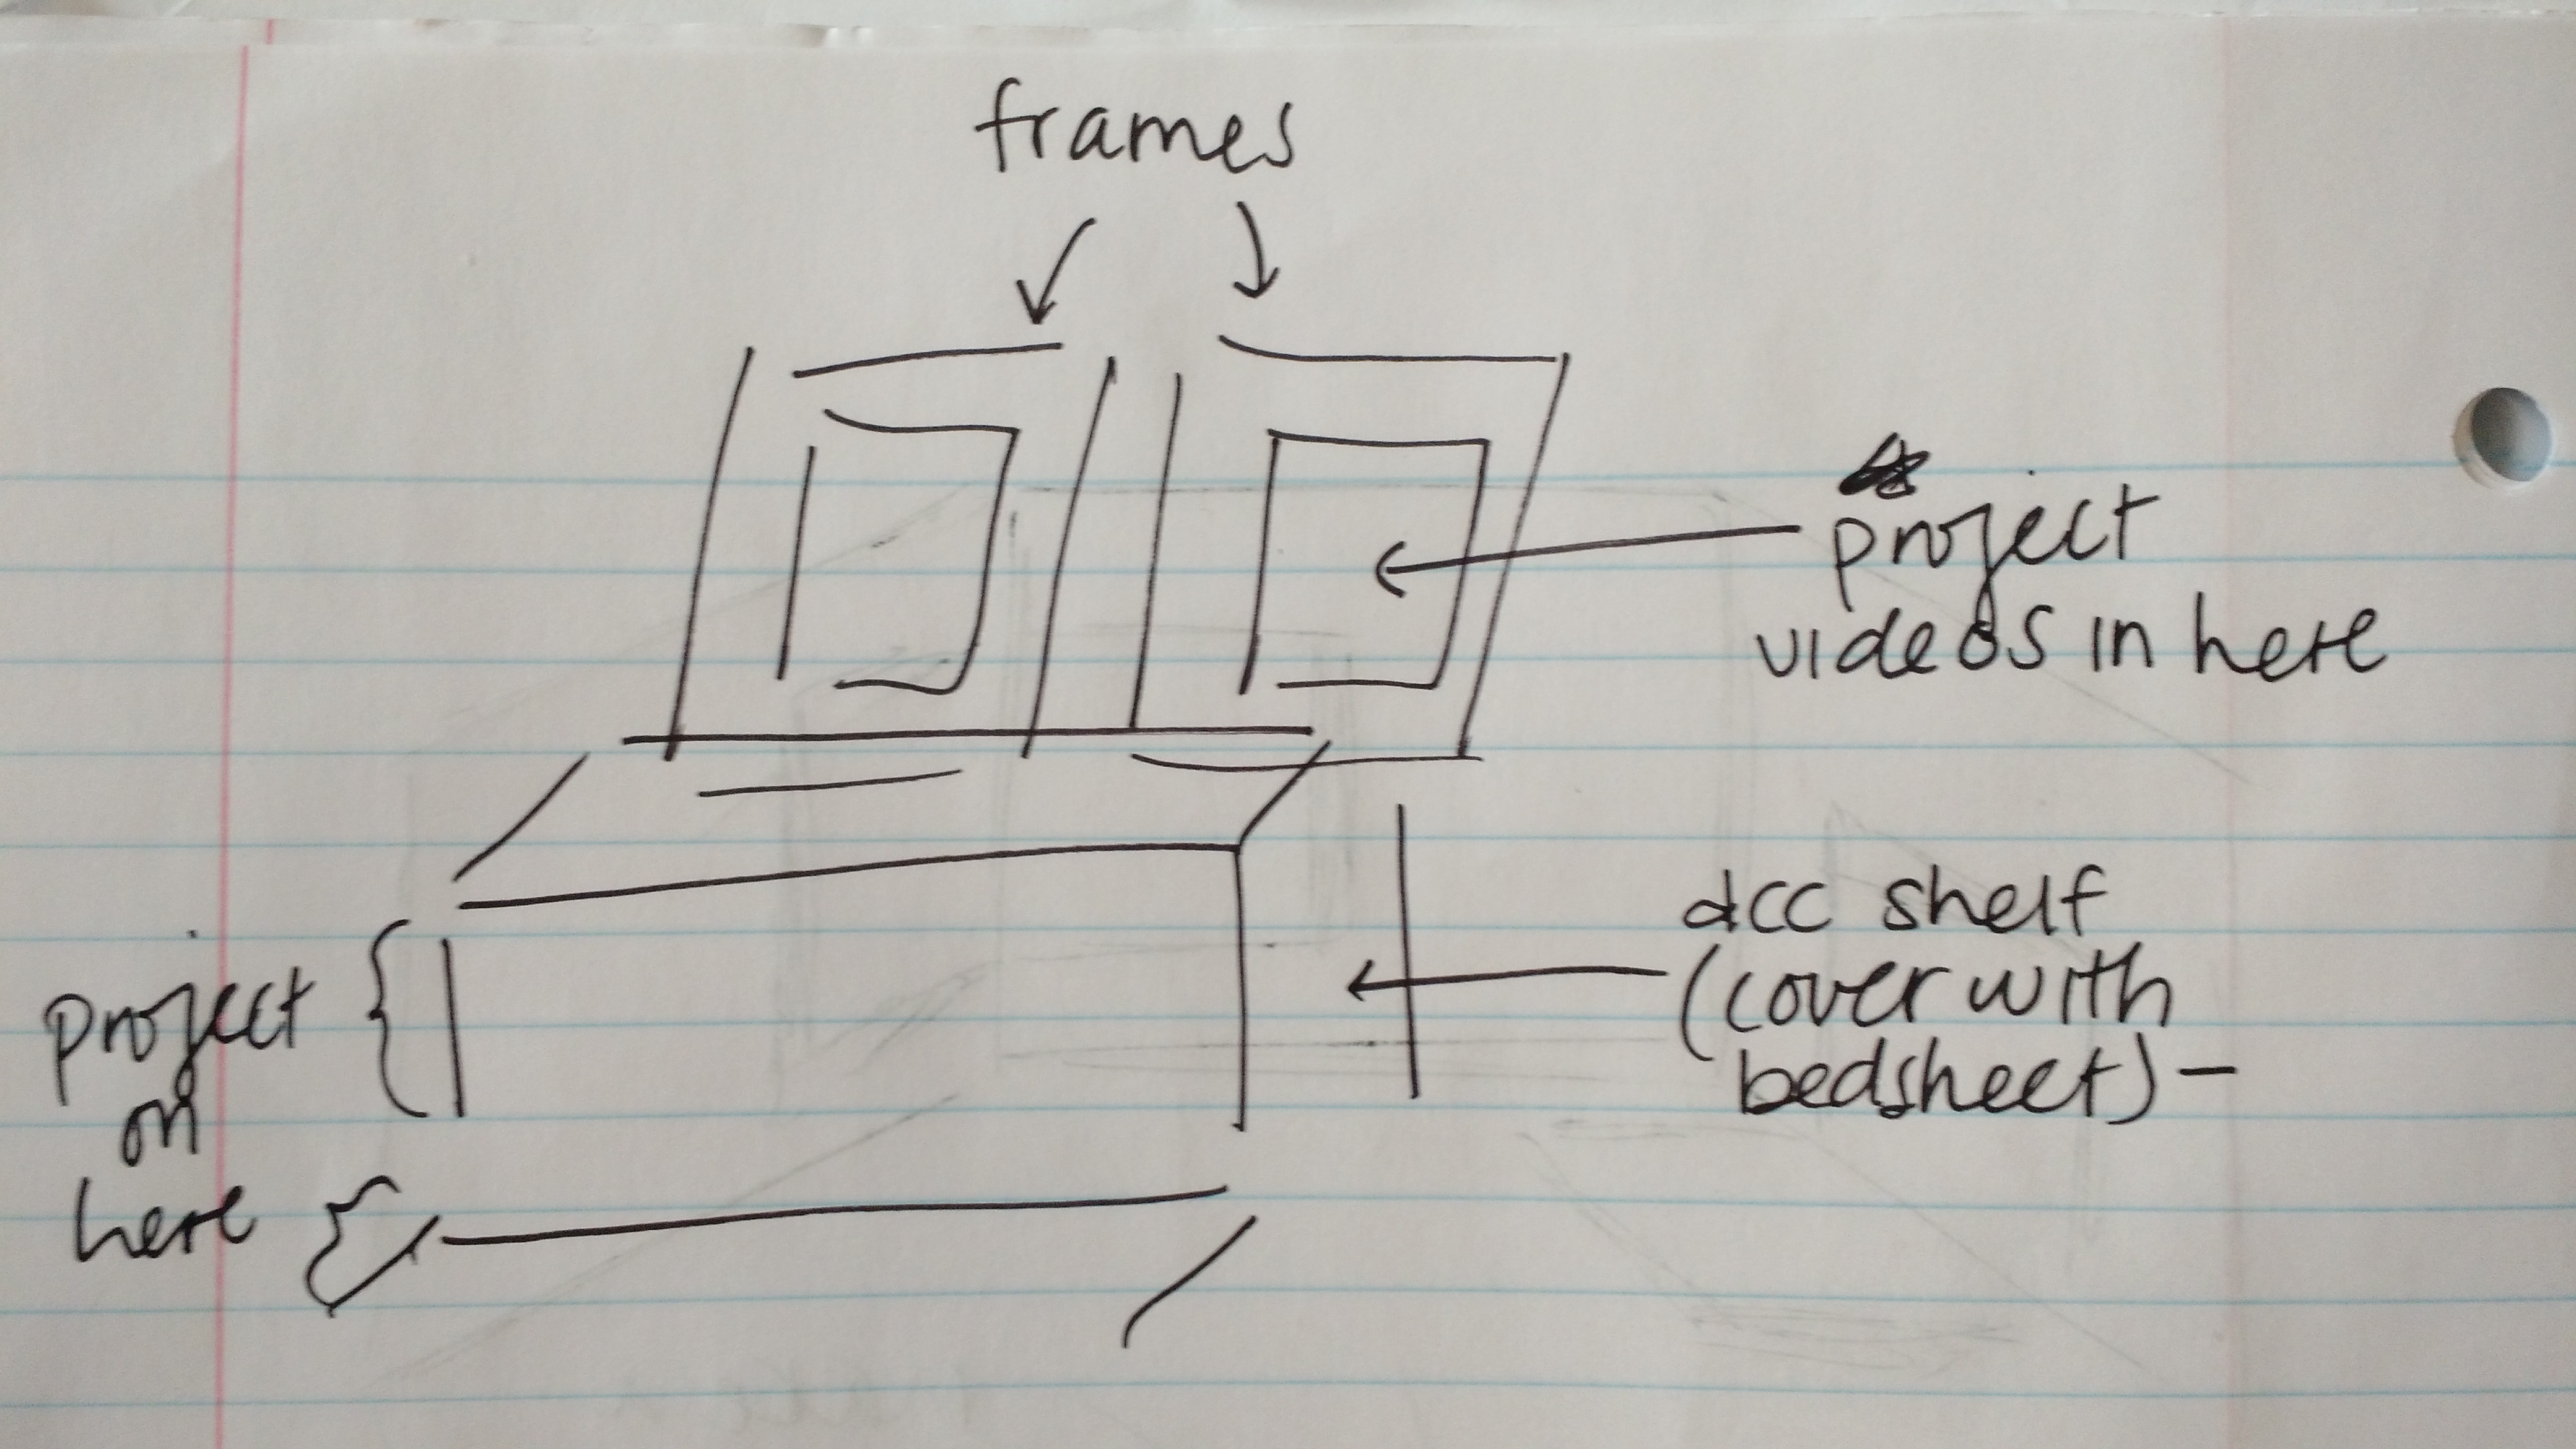 frames
project
videos in here
dcc shelf
(cover with
bedsheet) –
project
on
here